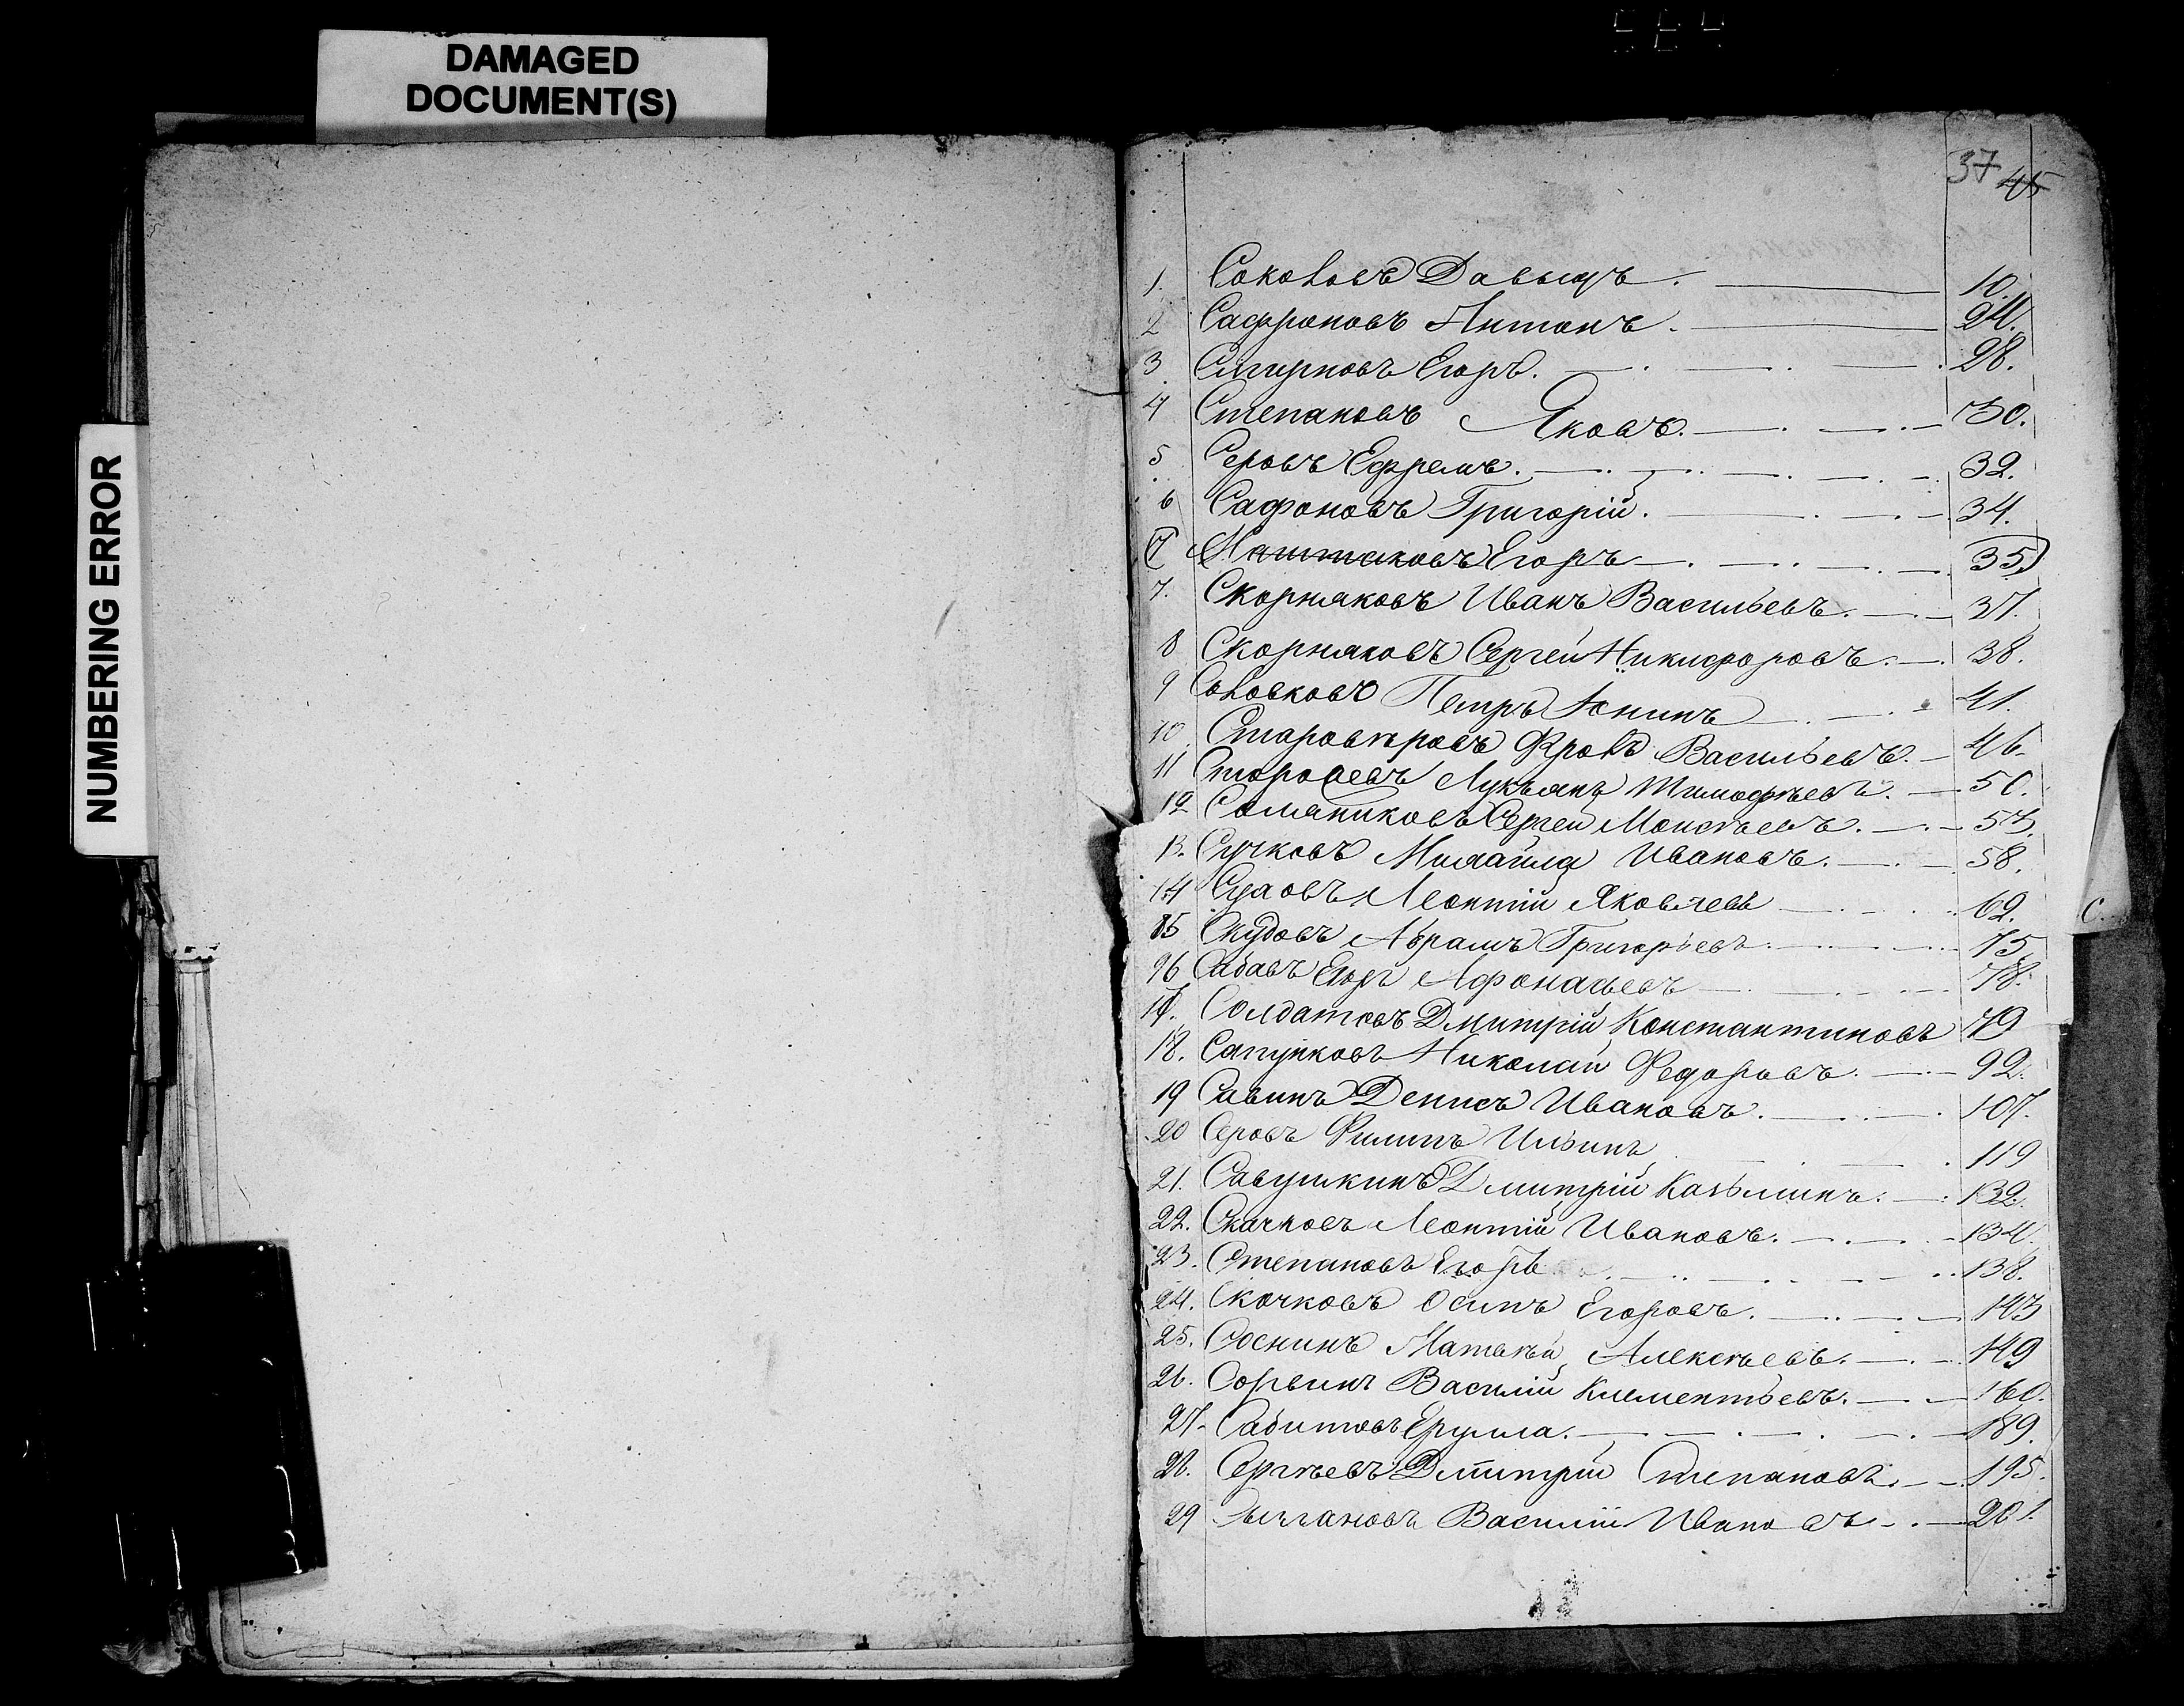 DAMAGED
DOCUMENT(S)
NUMBERING ERROR
37 45
1. Соколовъ Давыдъ. 10.
2 Сафроновъ Антонъ. 24.
3 Смирновъ Егоръ. 28.
4 Степановъ Яковъ. 30.
5 Серовъ Ефремъ. 32.
6 Сафоновъ Григорій. 34.
7 Маштаковъ Егоръ 35
7. Скорняковъ Иванъ Васильевъ. 37.
8 Скорняковъ Сергей Никифоровъ. 38.
9 Соловковъ Петръ Іонинъ 41.
10 Старовѣровъ Фролъ Васильевъ. 46
11 Сторожевъ Лукьянъ Тимофѣевъ. 50.
12 Соляниковъ Сергей Моисѣевъ. 53.
13. Сучковъ Михайла Ивановъ. 58.
14 Леонтій Яковлевъ 62.
15 Скудовъ Абрамъ Григорьевъ. 75
16 Егоръ Афонасьевъ 78.
17. Солдатовъ Дмитрій Константиновъ 79
18. Сапунковъ Николай Федоровъ. 92.
19 Савинъ Денисъ Ивановъ. 107.
20 Серовъ Филипъ Ильинъ 119
21. Савушкинъ Дмитрій Казьминъ. 132.
22. Скачковъ Леонтій Ивановъ. 134.
23. Степановъ Егоръ 138.
24. Скочковъ Осипъ Егоровъ. 143
25. Соснинъ Матвѣй Алексѣевъ. 149
26. Василій Клементьевъ. 160.
27. Сабитовъ 189.
28. Сергѣевъ Дмитрій Степановъ. 195.
29 Василій Ивановъ 201.
С.